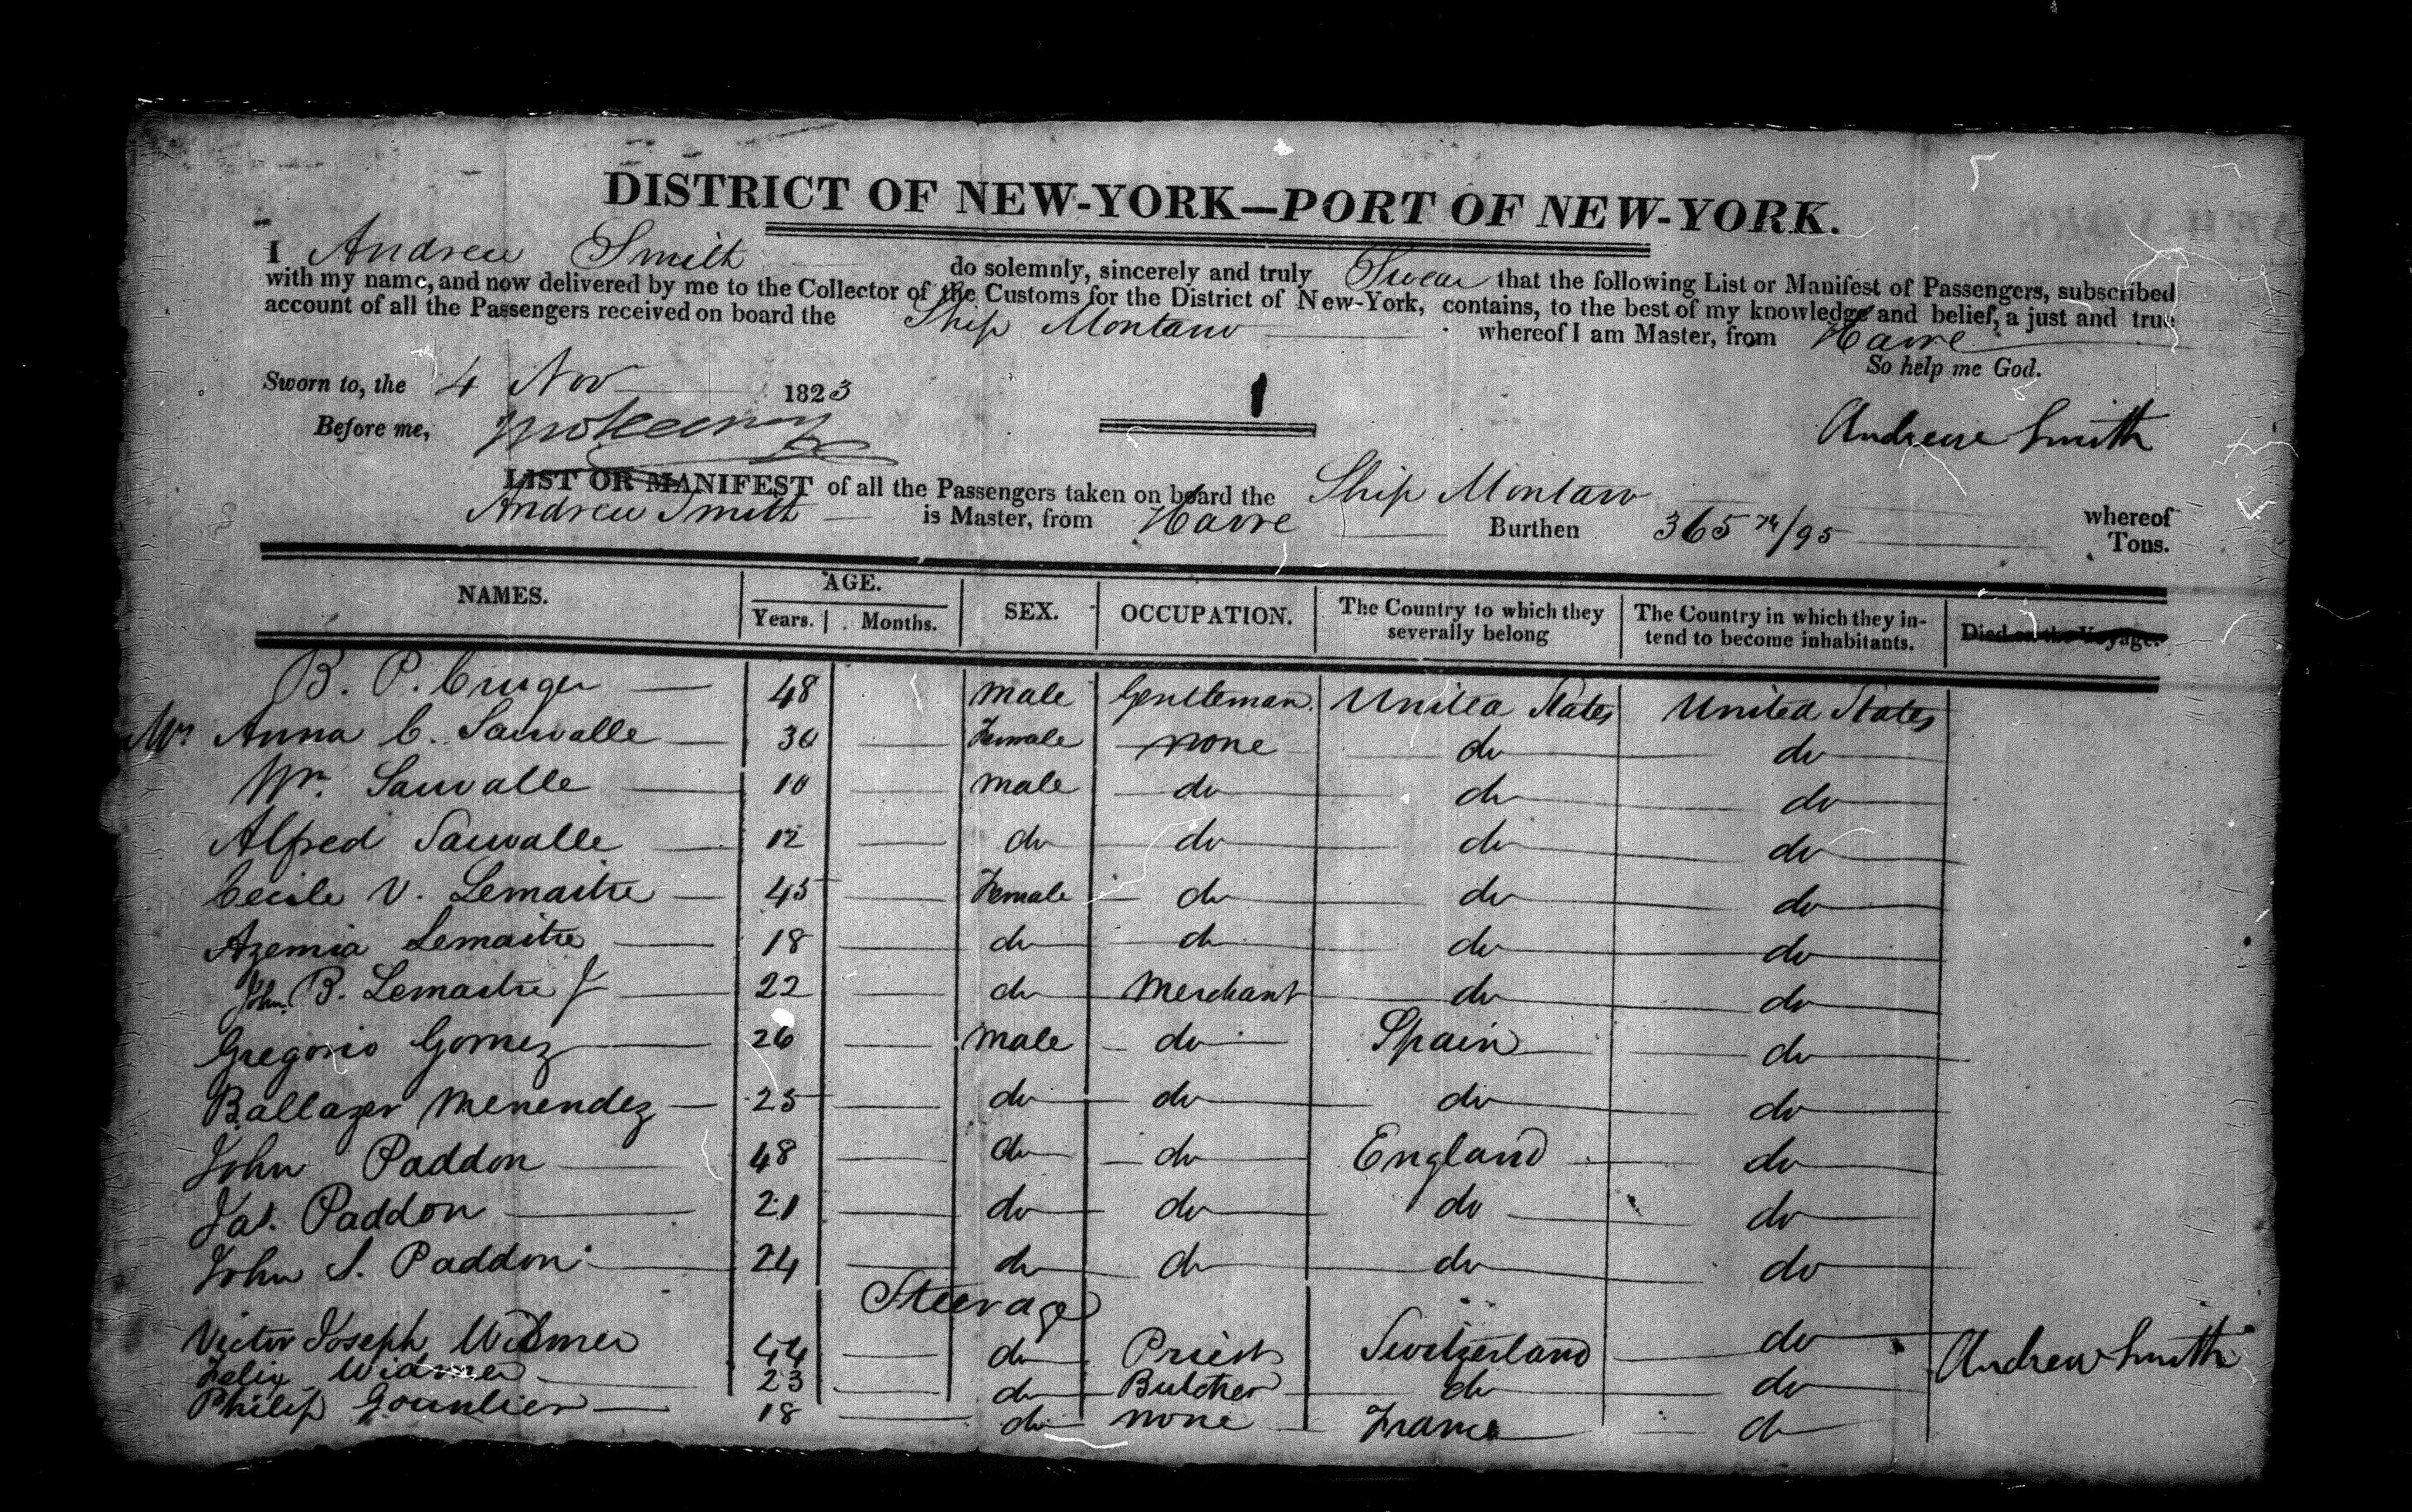 DISTRICT OF NEW-YORK—PORT OF NEW-YORK.
I Andrew Smith do solemnly, sincerely and truly Swear that the following List or Manifest of Passengers, subscribed
with my name, and now delivered by me to the Collector of the Customs for the District of New-York, contains, to the best of my knowledge and belief, a just and true
account of all the Passengers received on board the Ship Montano whereof I am Master, from Havre
So help me God.
Sworn to, the 4 Nov 1823
Before me,
Andrew Smith
LIST OR MANIFEST of all the Passengers taken on board the Ship Montano whereof
Andrew Smith is Master, from Havre Burthen 365 74/95 Tons.
NAMES. AGE. Years. Months. SEX. OCCUPATION. The Country to which they severally belong The Country in which they intend to become inhabitants. Died on the Voyage.
B. P. Cruger 48 Male Gentleman United States United States
Mrs Anna C. Sauvalle 30 Female none do do
Mr. Sauvalle 10 Male do do do
Alfred Sauvalle 12 do do do do
Cecile V. Lemaitre 45 Female do do do
Azemia Lemaitre 18 do do do do
John B. Lemaitre Jr 22 do Merchant do do
Gregorio Gomez 26 Male do Spain do
Baltazer Menendez 25 do do do do
John Paddon 48 do do England do
Jas. Paddon 21 do do do do
John S. Paddon 24 do do do do
Steerage
Victor Joseph Widmer 44 do Priest Switzerland do
Felix Widmer 23 do Butcher do do
Philip Gounlier 18 do none France do
Andrew Smith